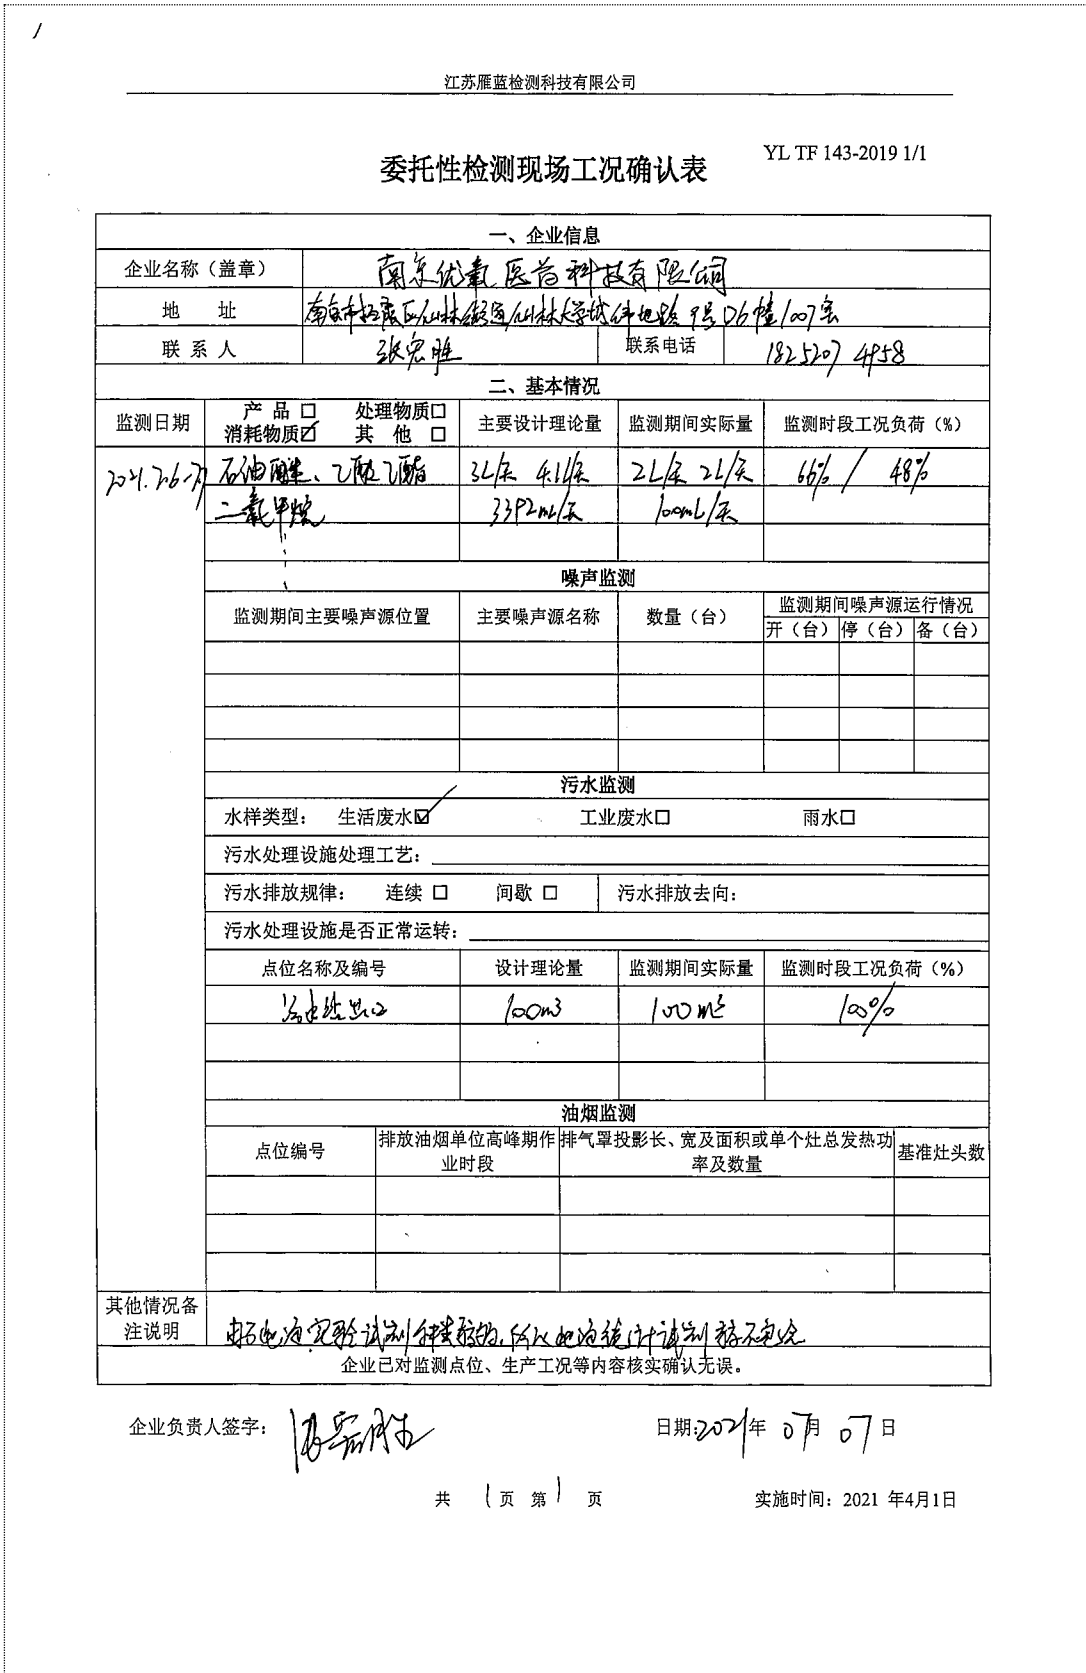 江苏雁蓝检测科技有限公司
YL TF 143-2019 1/1
委托性检测现场工况确认表
一、企业信息
企业名称（盖章） 南京优氧医药科技有限公司
地 址 南京市栖霞区仙林街道仙林大学城纬地路9号D6幢1007室
联 系 人 张宏胜 联系电话 18252074958
二、基本情况
监测日期 产 品□ 处理物质□ 消耗物质☑ 其 他 □ 主要设计理论量 监测期间实际量 监测时段工况负荷（%）
2021.7.6-7.7 石油醚、乙酸乙酯 3L/天 4.1L/天 2L/天 2L/天 66% / 48%
二氯甲烷 3392mL/天 100mL/天
噪声监测
监测期间主要噪声源位置 主要噪声源名称 数量（台） 监测期间噪声源运行情况
开（台） 停（台） 备（台）
污水监测
水样类型： 生活废水☑ 工业废水□ 雨水□
污水处理设施处理工艺：
污水排放规律： 连续 □ 间歇 □ 污水排放去向：
污水处理设施是否正常运转：
点位名称及编号 设计理论量 监测期间实际量 监测时段工况负荷（%）
污水站出口 100m3 100m3 100%
油烟监测
点位编号 排放油烟单位高峰期作业时段 排气罩投影长、宽及面积或单个灶总发热功率及数量 基准灶头数
其他情况备注说明 实验试剂种类较多,所以 统计试剂
企业已对监测点位、生产工况等内容核实确认无误。
企业负责人签字： 张宏胜 日期:2021年 07月 07日
共 1页 第1 页 实施时间：2021 年4月1日